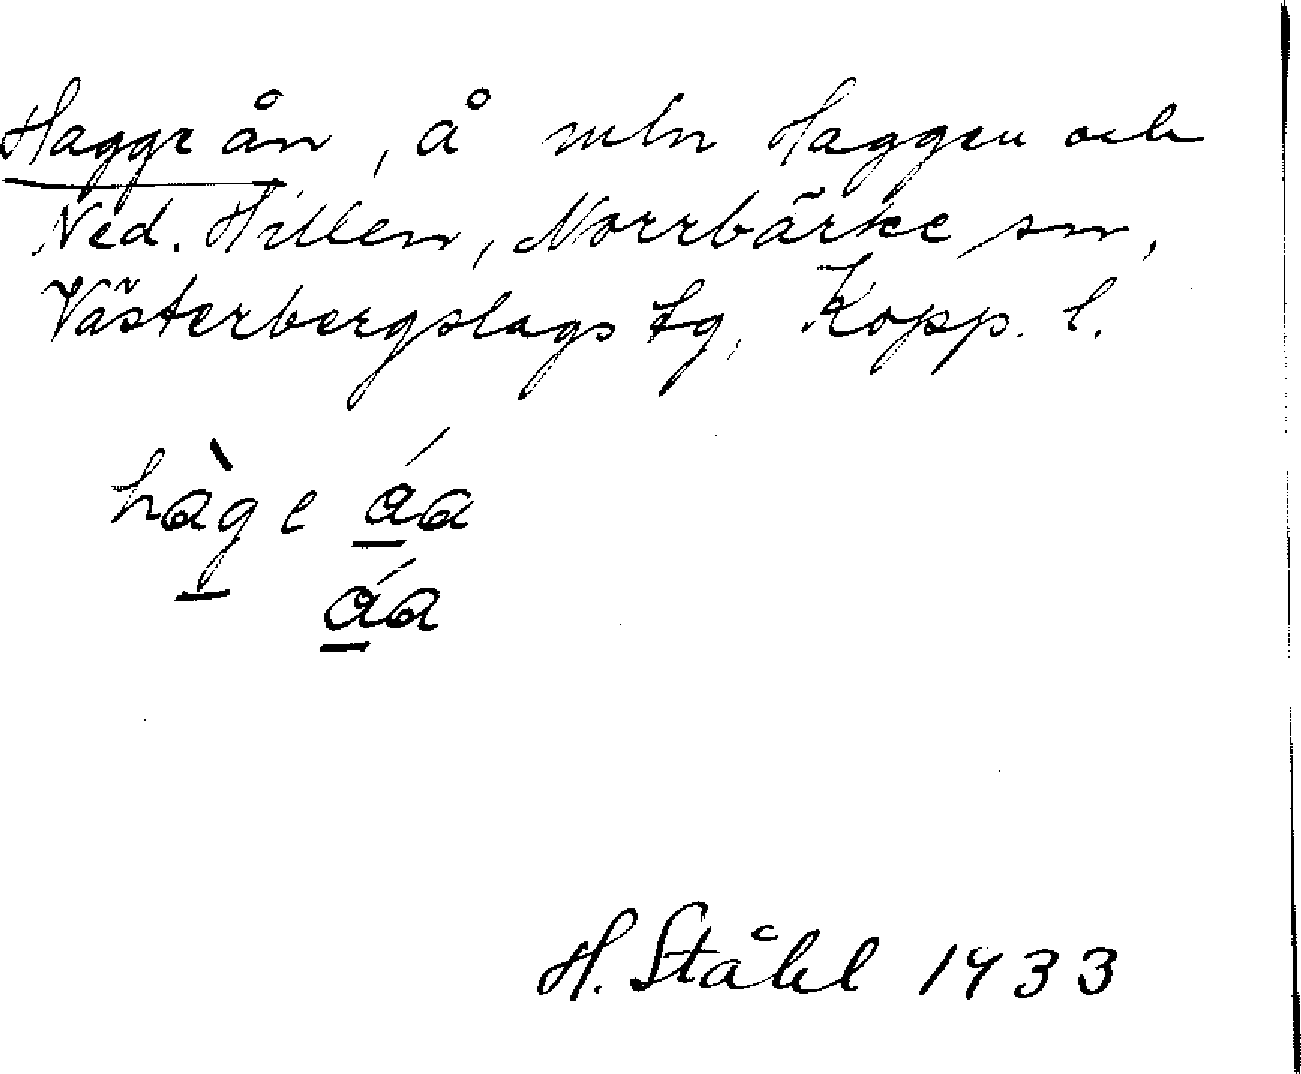 Hagge ån, å mln Haggen och
Ned. Hillen, Norrbärke sn,
Västerbergslags tg, Kopp. l.
hàge åa
åa
H. Ståhl 1933